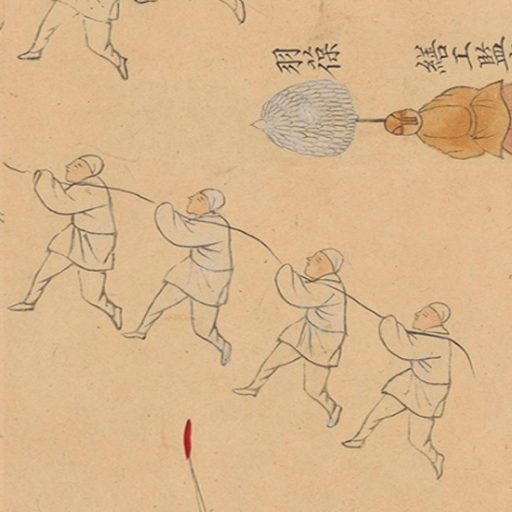 羽葆
繕工監